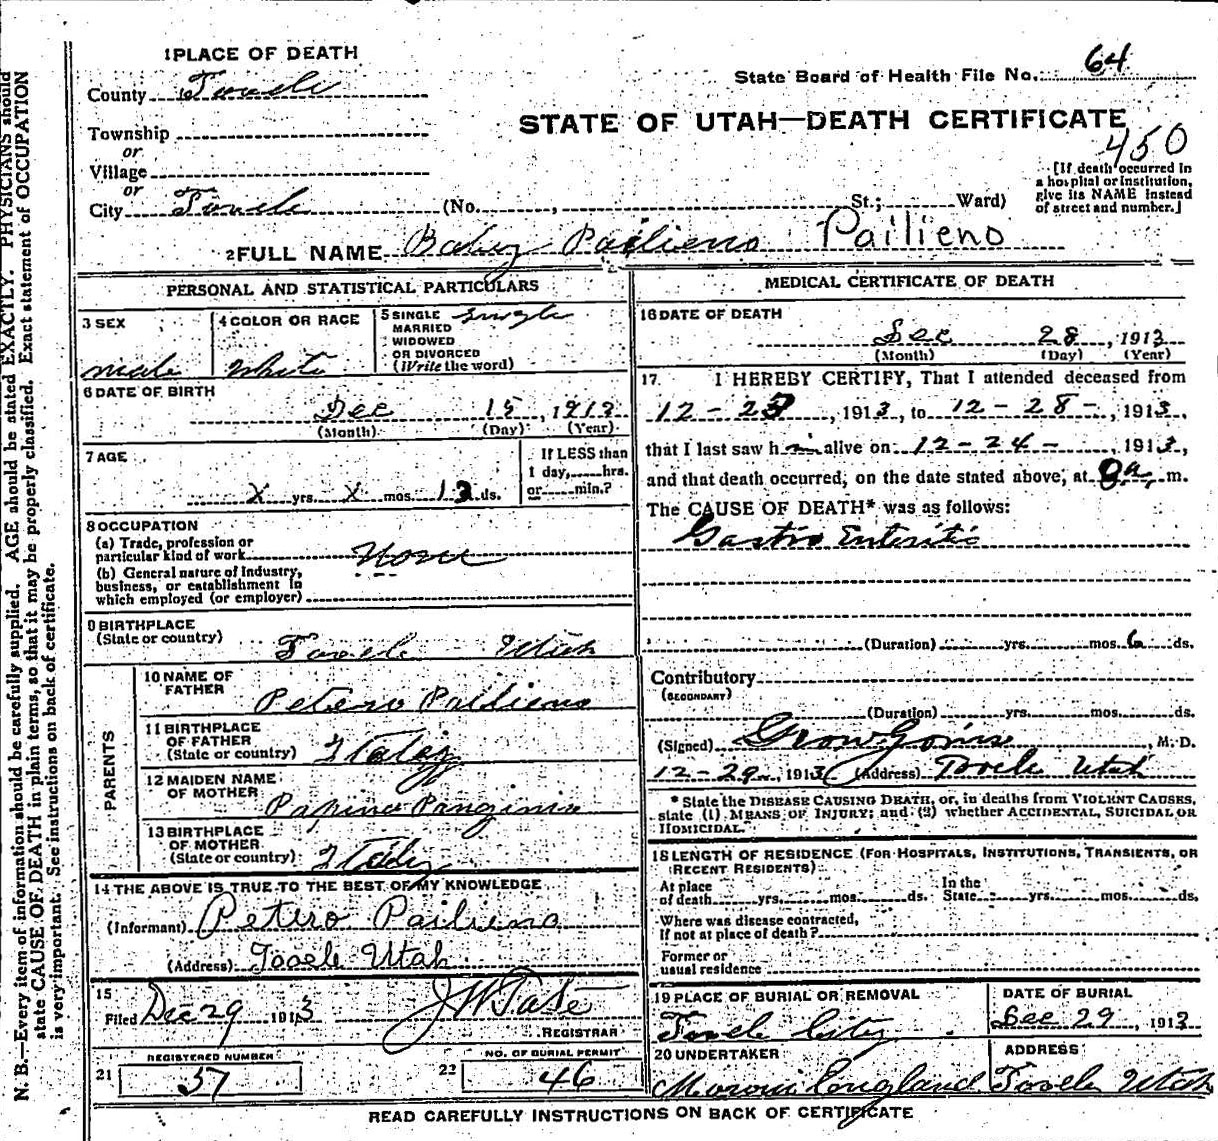 1 PLACE OF DEATH
County Tooele
State Board of Health File No. 64
STATE OF UTAH—DEATH CERTIFICATE
450
Township
or
Village
or
City Tooele (No. , St.; Ward)
[If death occurred in
a hospital or institution,
give its NAME instead
of street and number.]
2 FULL NAME Baby Pailieno Pailieno
PERSONAL AND STATISTICAL PARTICULARS
3 SEX
male
4 COLOR OR RACE
White
5 SINGLE
MARRIED
WIDOWED
OR DIVORCED
(Write the word)
Single
6 DATE OF BIRTH
Dec 15, 1913
(Month) (Day) (Year)
7 AGE
X yrs. X mos. 13 ds.
If LESS than
1 day, hrs.
or min.?
8 OCCUPATION
(a) Trade, profession or
particular kind of work None
(b) General nature of industry,
business, or establishment in
which employed (or employer)
9 BIRTHPLACE
(State or country)
Tooele Utah
PARENTS
10 NAME OF
FATHER
Petero Pailieno
11 BIRTHPLACE
OF FATHER
(State or country) Italy
12 MAIDEN NAME
OF MOTHER
13 BIRTHPLACE
OF MOTHER
(State or country) Italy
14 THE ABOVE IS TRUE TO THE BEST OF MY KNOWLEDGE
(Informant) Petero Pailieno
(Address) Tooele Utah
15
Filed Dec 29 1913
REGISTRAR
REGISTERED NUMBER
21 37
NO. OF BURIAL PERMIT
22 46
MEDICAL CERTIFICATE OF DEATH
16 DATE OF DEATH
Dec 28, 1913
(Month) (Day) (Year)
17. I HEREBY CERTIFY, That I attended deceased from
12-23, 1913, to 12-28-, 1913,
that I last saw him alive on 12-24-, 1913,
and that death occurred, on the date stated above, at a. m.
The CAUSE OF DEATH* was as follows:
Gastro Enteritis
(Duration) yrs. mos. 6 ds.
Contributory
(SECONDARY)
(Duration) yrs. mos. ds.
(Signed) , M. D.
12-29, 1913 (Address) Tooele Utah
* State the DISEASE CAUSING DEATH, or, in deaths from VIOLENT CAUSES,
state (1) MEANS OF INJURY; and (2) whether ACCIDENTAL, SUICIDAL OR
HOMICIDAL.
18 LENGTH OF RESIDENCE (FOR HOSPITALS, INSTITUTIONS, TRANSIENTS, OR
RECENT RESIDENTS)
At place
of death yrs. mos. ds.
In the
State yrs. mos. ds.
Where was disease contracted,
If not at place of death?
Former or
usual residence
19 PLACE OF BURIAL OR REMOVAL
Tooele City
DATE OF BURIAL
Dec 29, 1913
20 UNDERTAKER
Moroni England
ADDRESS
Tooele Utah
READ CAREFULLY INSTRUCTIONS ON BACK OF CERTIFICATE
N. B.—Every item of information should be carefully supplied. AGE should be stated EXACTLY. PHYSICIANS should
state CAUSE OF DEATH in plain terms, so that it may be properly classified. Exact statement of OCCUPATION
is very important. See instructions on back of certificate.